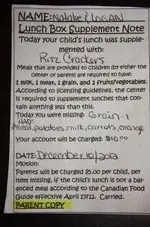 NAME: Natalie & Logan
Lunch Box Supplement Note
Today your child's lunch was supple-
mented with:
Ritz Crackers
Meals that are provided to children by either the
center or parent are required to have:
1 milk, 1 meat, 1 grain, and 2 fruits/vegetables.
According to licensing guidelines, the center
is required to supplement lunches that con-
tain anything less than this.
Today you were missing: Grain-1
HAD:
meat, potatoes, milk, carrots, orange
Your account will be charged: $10.00
DATE: December 10/2013
Motion:
Parents will be charged $5.00 per child, per
item missing, if the child's lunch is not a bal-
anced meal according to the Canadian Food
Guide effective April 17/12. Carried.
PARENT COPY